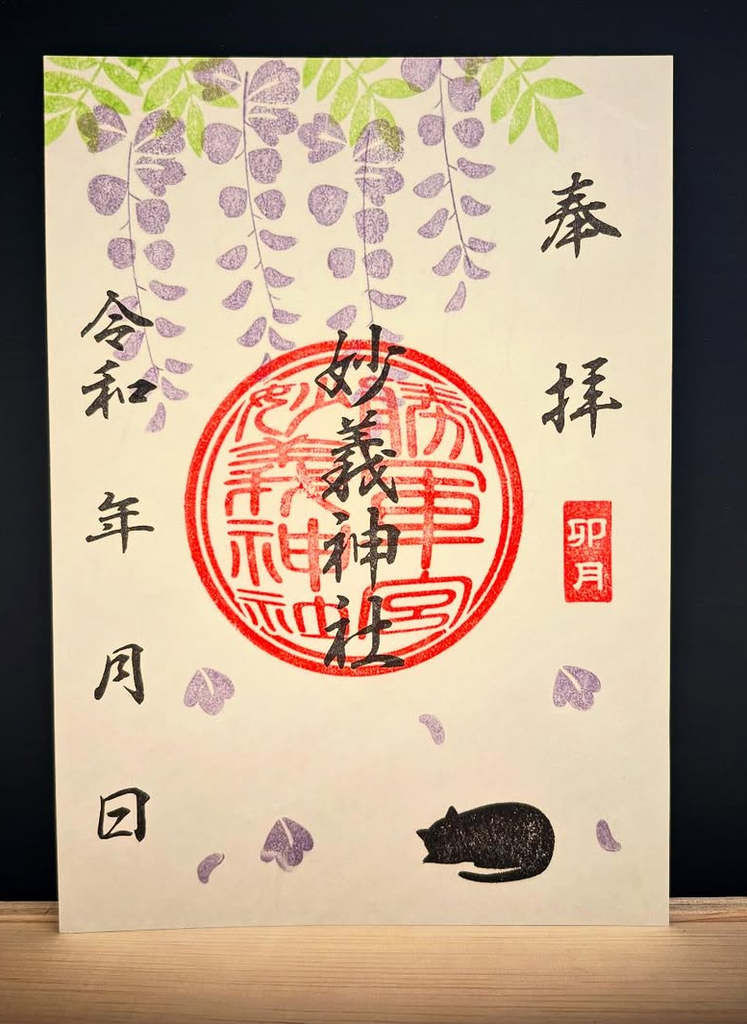 奉拝
卯月
妙義神社
勝軍宮
妙義神社
令和 年 月 日